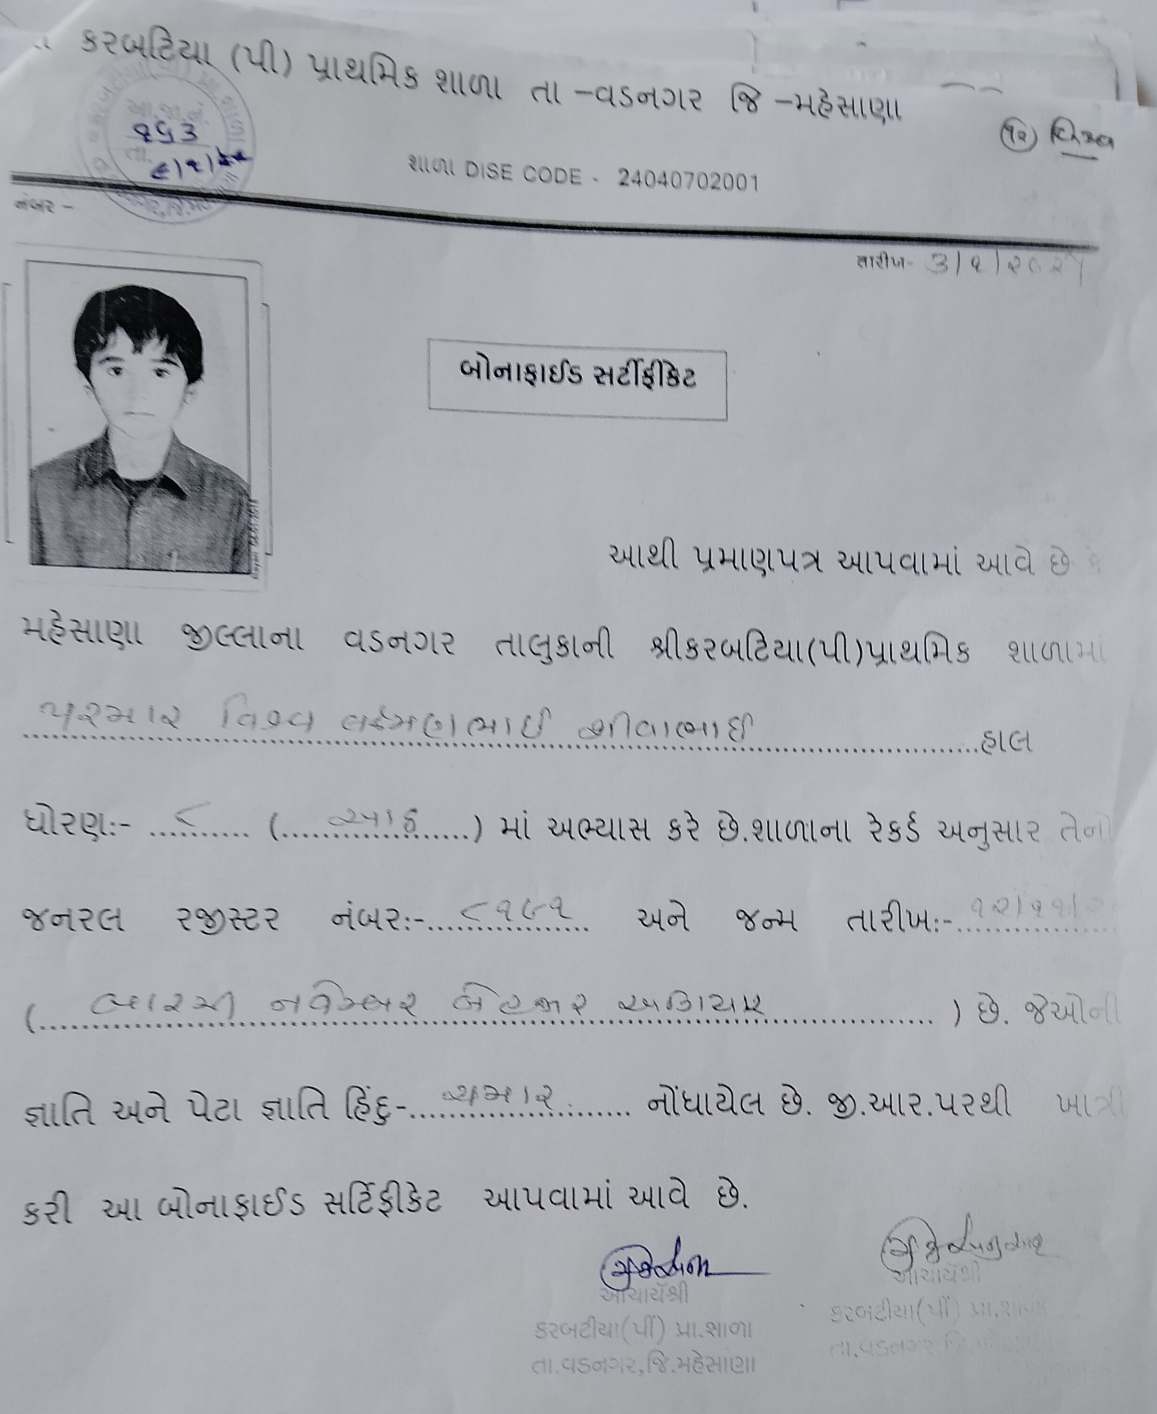 કરબટિયા (પી) પ્રાથમિક શાળા તા -વડનગર જિ -મહેસાણા
૧૬૩
(૧૨) વિશ્વ
શાળા DISE CODE - 24040702001
નંબર -
તારીખ- 3/૧/૨૦૨૫
બોનાફાઈડ સર્ટીફીકેટ
આથી પ્રમાણપત્ર આપવામાં આવે છે કે
મહેસાણા જીલ્લાના વડનગર તાલુકાની શ્રીકરબટિયા(પી)પ્રાથમિક શાળામાં
પરમાર વિશ્વ લક્ષ્મણભાઈ શીવાભાઈ હાલ
ધોરણ:- ૮ (આઠ) માં અભ્યાસ કરે છે.શાળાના રેકર્ડ અનુસાર તેનો
જનરલ રજીસ્ટર નંબર:- ૮૧૯૧ અને જન્મ તારીખ:- ૧૨/૧૧/
(બારમી નવેમ્બર બે હજાર અગિયાર) છે. જેઓની
જ્ઞાતિ અને પેટા જ્ઞાતિ હિંદુ- ચમાર નોંધાયેલ છે. જી.આર.પરથી ખાત્રી
કરી આ બોનાફાઈડ સર્ટિફીકેટ આપવામાં આવે છે.
આચાર્યશ્રી
કરબટીયા(પીં) પ્રા.શાળા
તા.વડનગર,જિ.મહેસાણા
આચાર્યશ્રી
કરબટીયા(પીં) પ્રા.શાળા
તા.વડનગર